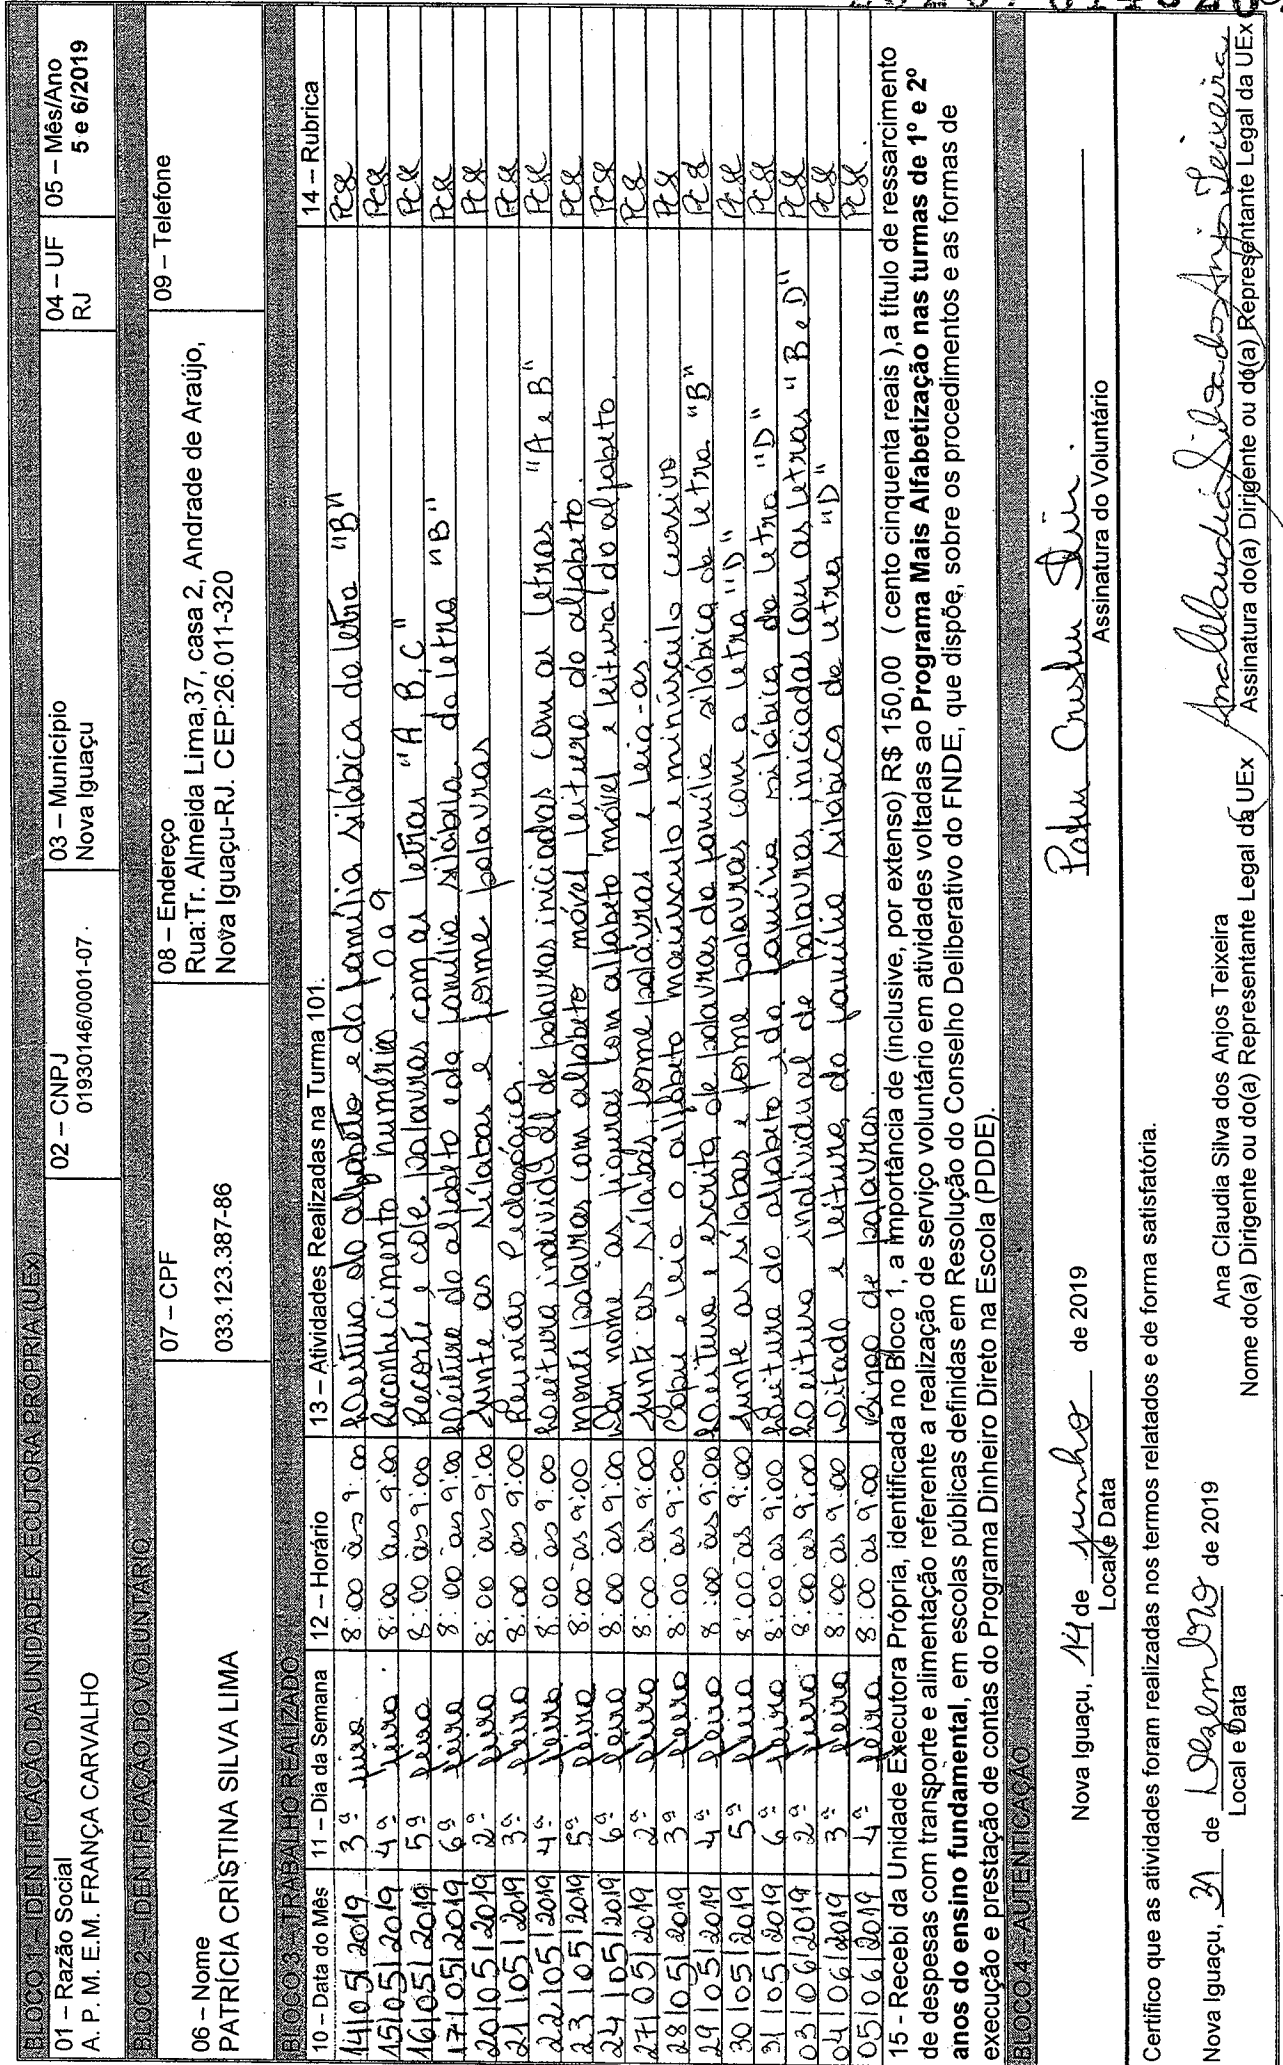 BLOCO 1 – IDENTIFICAÇÃO DA UNIDADE EXECUTORA PRÓPRIA (UEx)
01 – Razão Social
A. P. M. E.M. FRANÇA CARVALHO
02 – CNPJ
01930146/0001-07.
03 – Município
Nova Iguaçu
04 – UF
RJ
05 – Mês/Ano
5 e 6/2019
BLOCO 2 – IDENTIFICAÇÃO DO VOLUNTÁRIO
06 – Nome
PATRÍCIA CRISTINA SILVA LIMA
07 – CPF
033.123.387-86
08 – Endereço
Rua:Tr. Almeida Lima,37, casa 2, Andrade de Araújo,
Nova Iguaçu-RJ. CEP:26.011-320
09 – Telefone
BLOCO 3 – TRABALHO REALIZADO
10 – Data do Mês 11 – Dia da Semana 12 – Horário 13 – Atividades Realizadas na Turma 101. 14 – Rubrica
14/05/2019 3ª feira. 8:00 às 9:00 Leitura do alfabeto e da família silábica da letra "B" PCSL
15/05/2019 4ª feira. 8:00 às 9:00 Reconhecimento numérico. 0 a 9 PCSL
16/05/2019 5ª feira 8:00 às 9:00 Recorte e cole palavras com as letras "A, B, C" PCSL
17/05/2019 6ª feira 8:00 às 9:00 Leitura do alfabeto e da família silábica da letra "B" PCSL
20/05/2019 2ª feira 8:00 às 9:00 Junte as sílabas e forme palavras PCSL
21/05/2019 3ª feira 8:00 às 9:00 Reunião Pedagógica. PCSL
22/05/2019 4ª feira 8:00 às 9:00 Leitura individual de palavras iniciadas com as letras. "A e B" PCSL
23/05/2019 5ª feira 8:00 às 9:00 monte palavras com alfabeto móvel, leitura do alfabeto. PCSL
24/05/2019 6ª feira 8:00 às 9:00 Dar nome às figuras com alfabeto móvel e leitura do alfabeto. PCSL
27/05/2019 2ª feira 8:00 às 9:00 Junte as sílabas, forme palavras e leia-as. PCSL
28/05/2019 3ª feira 8:00 às 9:00 Copie e leia o alfabeto maiúsculo e minúsculo cursivo PCSL
29/05/2019 4ª feira 8:00 às 9:00 Leitura e escrita de palavras da família silábica da letra "B" PCSL
30/05/2019 5ª feira 8:00 às 9:00 Junte as sílabas e forme palavras com a letra "D" PCSL
31/05/2019 6ª feira 8:00 às 9:00 Leitura do alfabeto e da família silábica da letra "D" PCSL
03/06/2019 2ª feira 8:00 às 9:00 Leitura individual de palavras iniciadas com as letras "B e D" PCSL
04/06/2019 3ª feira 8:00 às 9:00 Ditado e leitura da família silábica da letra "D" PCSL
05/06/2019 4ª feira 8:00 às 9:00 Bingo de palavras. PCSL.
15 - Recebi da Unidade Executora Própria, identificada no Bloco 1, a importância de (inclusive, por extenso) R$ 150,00 ( cento cinquenta reais ),a título de ressarcimento
de despesas com transporte e alimentação referente a realização de serviço voluntário em atividades voltadas ao Programa Mais Alfabetização nas turmas de 1º e 2º
anos do ensino fundamental, em escolas públicas definidas em Resolução do Conselho Deliberativo do FNDE, que dispõe, sobre os procedimentos e as formas de
execução e prestação de contas do Programa Dinheiro Direto na Escola (PDDE).
BLOCO 4 – AUTENTICAÇÃO
Nova Iguaçu, 14 de junho de 2019
Local e Data
Assinatura do Voluntário
Certifico que as atividades foram realizadas nos termos relatados e de forma satisfatória.
Nova Iguaçu, 31 de Dezembro de 2019
Local e Data
Ana Claudia Silva dos Anjos Teixeira
Nome do(a) Dirigente ou do(a) Representante Legal da UEx
Ana Claudia Silva dos Anjos Teixeira
Assinatura do(a) Dirigente ou do(a) Representante Legal da UEx